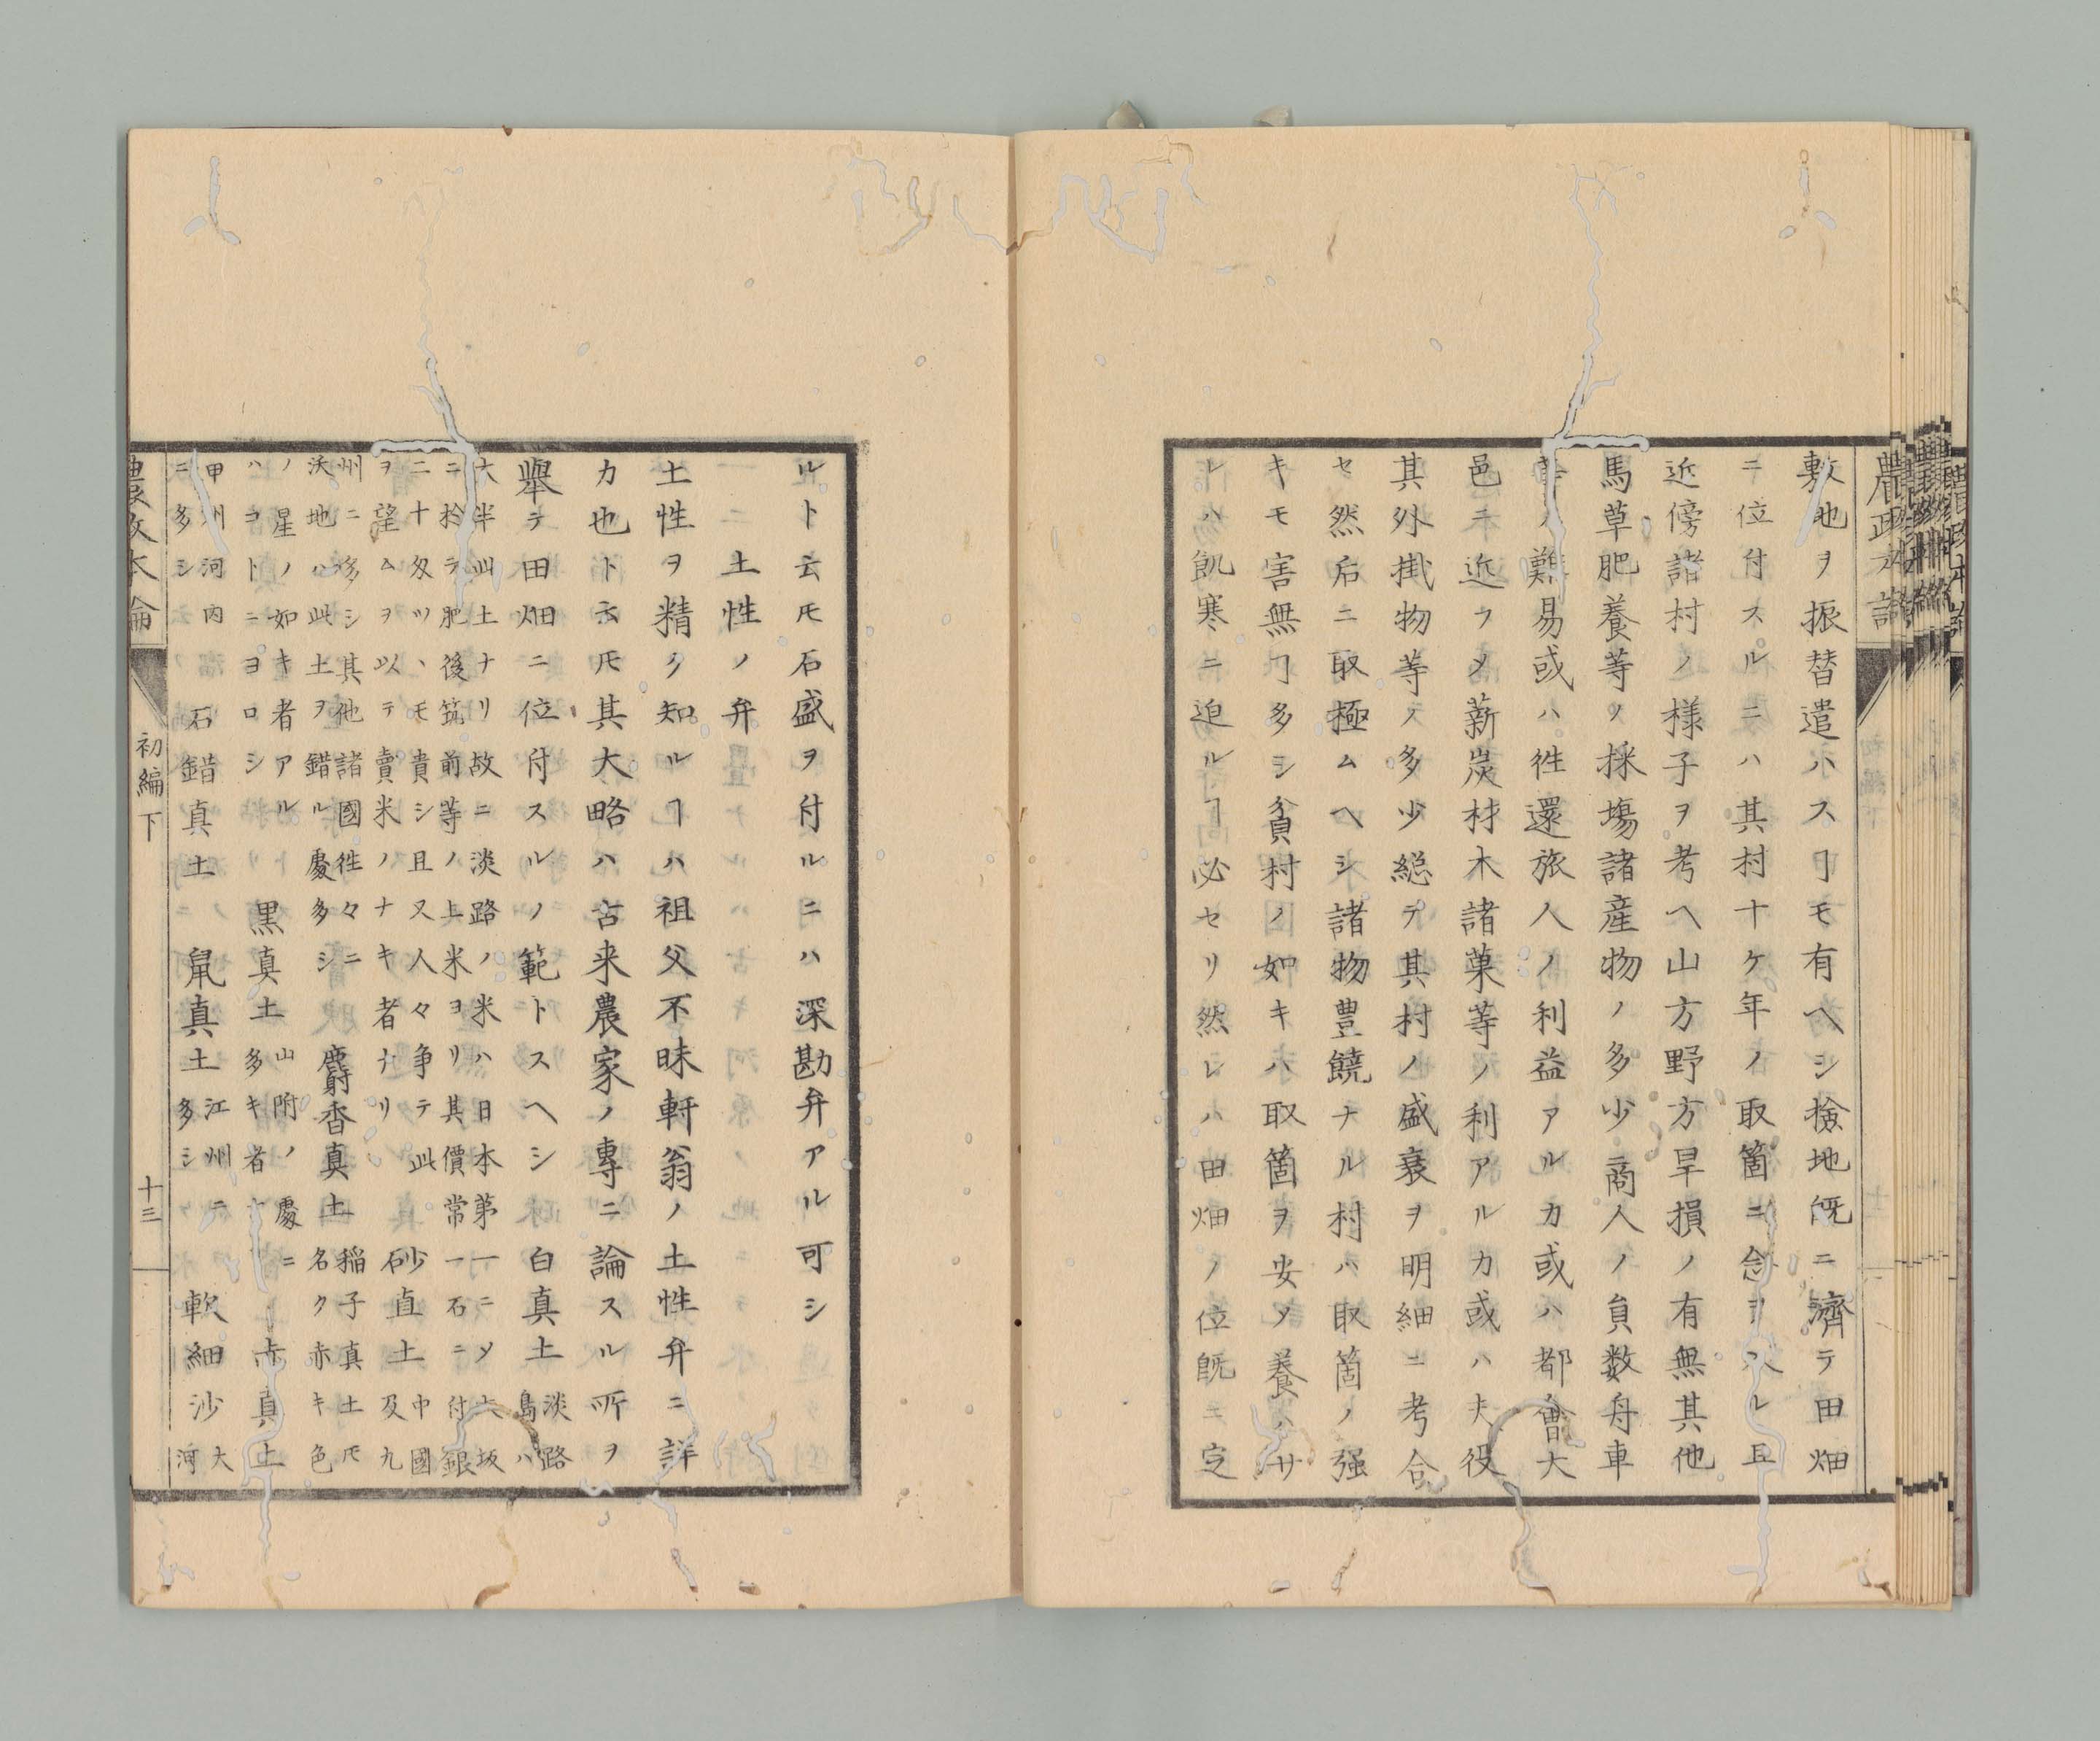 農政本論
敷地ヲ振替遣ハスヿモ有ヘシ撿地既ニ濟テ田畑
ニ位付スルニハ其村十ケ年ノ取箇ニ念ヲ入レ且
近傍諸村ノ様子ヲ考ヘ山方野方旱損ノ有無其他
馬草肥養等ノ採塲諸産物ノ多少商人ノ負数舟車
ノ難易或ハ徃還旅人ノ利益アルカ或ハ都會大
邑ニ近フメ薪炭材木諸菓等ノ利アルカ或ハ夫役
其外掛物等ノ多少総テ其村ノ盛衰ヲ明細ニ考合
セ然后ニ取極ムヘシ諸物豊饒ナル村ハ取箇ノ强
キモ害無ヿ多シ貧村ノ如キハ取箇ヲ安メ養ハサ
レハ飢寒ニ迫ルヿ必セリ然レハ田畑ノ位既ニ定
ルト云𪜈石盛ヲ付ルニハ深勘弁アル可シ
土性ノ弁
土性ヲ精ク知ルヿハ祖父不昧軒翁ノ土性弁ニ詳
カ也ト云𪜈其大略ハ古来農家ノ專ニ論スル所ヲ
舉テ田畑ニ位付スルノ範トスヘシ白真土
淡路
島ハ
大半此土ナリ故ニ淡路ノ米ハ日本第一ニメ大坂
ニ於テ肥後筑前等ノ上米ヨリ其價常一石ニ付銀
二十匁ツヽモ貴シ且又人々争テ此
ヲ望ムヲ以テ賣米ノナキ者ナリ
砂真土
中國
及九
州ニ多シ其他諸國徃々ニ
沃地ハ此土ヲ錯ル處多シ
麝香真土
稲子真土𪜈
名ク赤キ色
ノ星ノ如キ者アル
ハヨトニヨロシ
黒真土
山附ノ處ニ
多キ者ナ
赤真土
甲州河内
ニ多シ
石錯真土
鼠真土
江州ニ
多シ
軟細沙
大
河
農政本論
初編下
十三